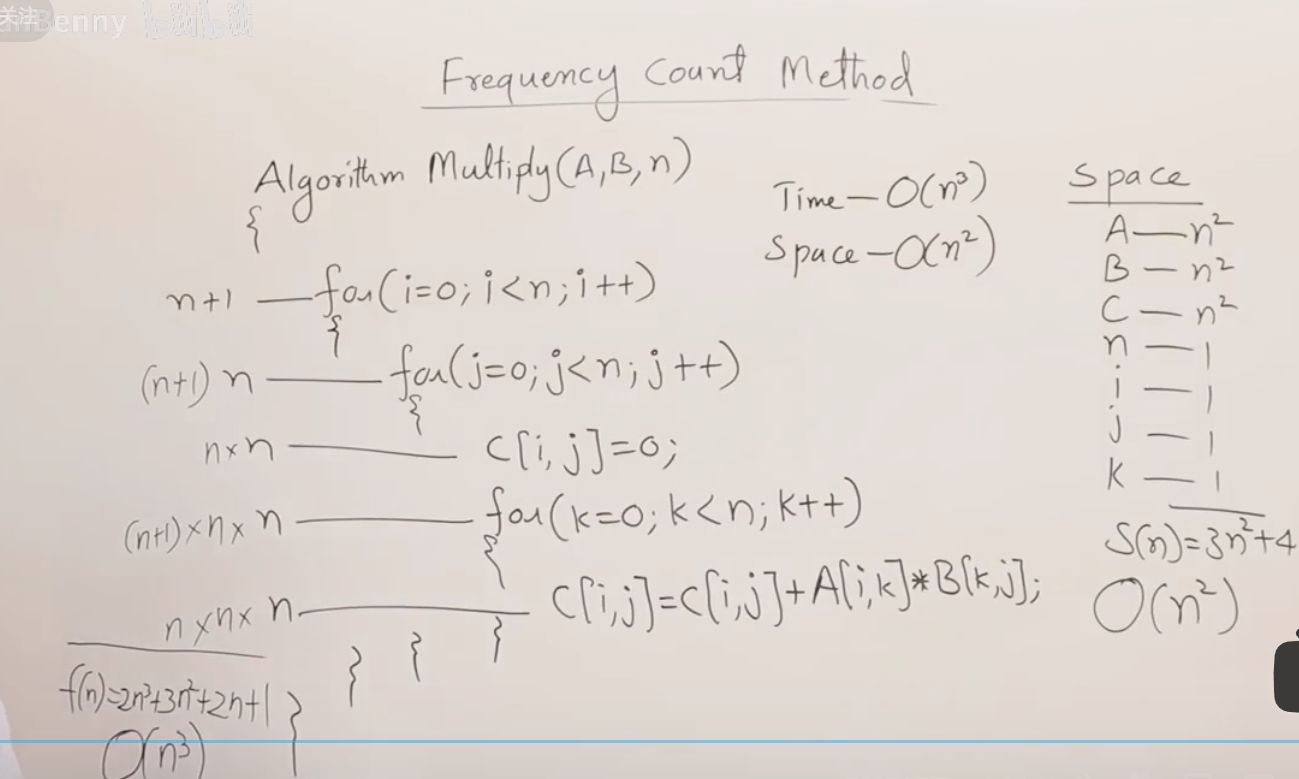 关注
Benny
Frequency Count Method
Algorithm Multiply(A,B,n)
{
n+1 — for(i=0; i<n; i++)
{
(n+1) n — for(j=0; j<n; j++)
{
n×n — C[i,j]=0;
(n+1)×n×n — for(k=0; k<n; k++)
{
n×n×n — C[i,j]=C[i,j]+A[i,k]*B[k,j];
} } }
f(n)=2n³+3n²+2n+1 }
O(n³)
Time—O(n³)
Space—O(n²)
Space
A — n²
B — n²
C — n²
n — 1
i — 1
j — 1
k — 1
S(n)=3n²+4
O(n²)